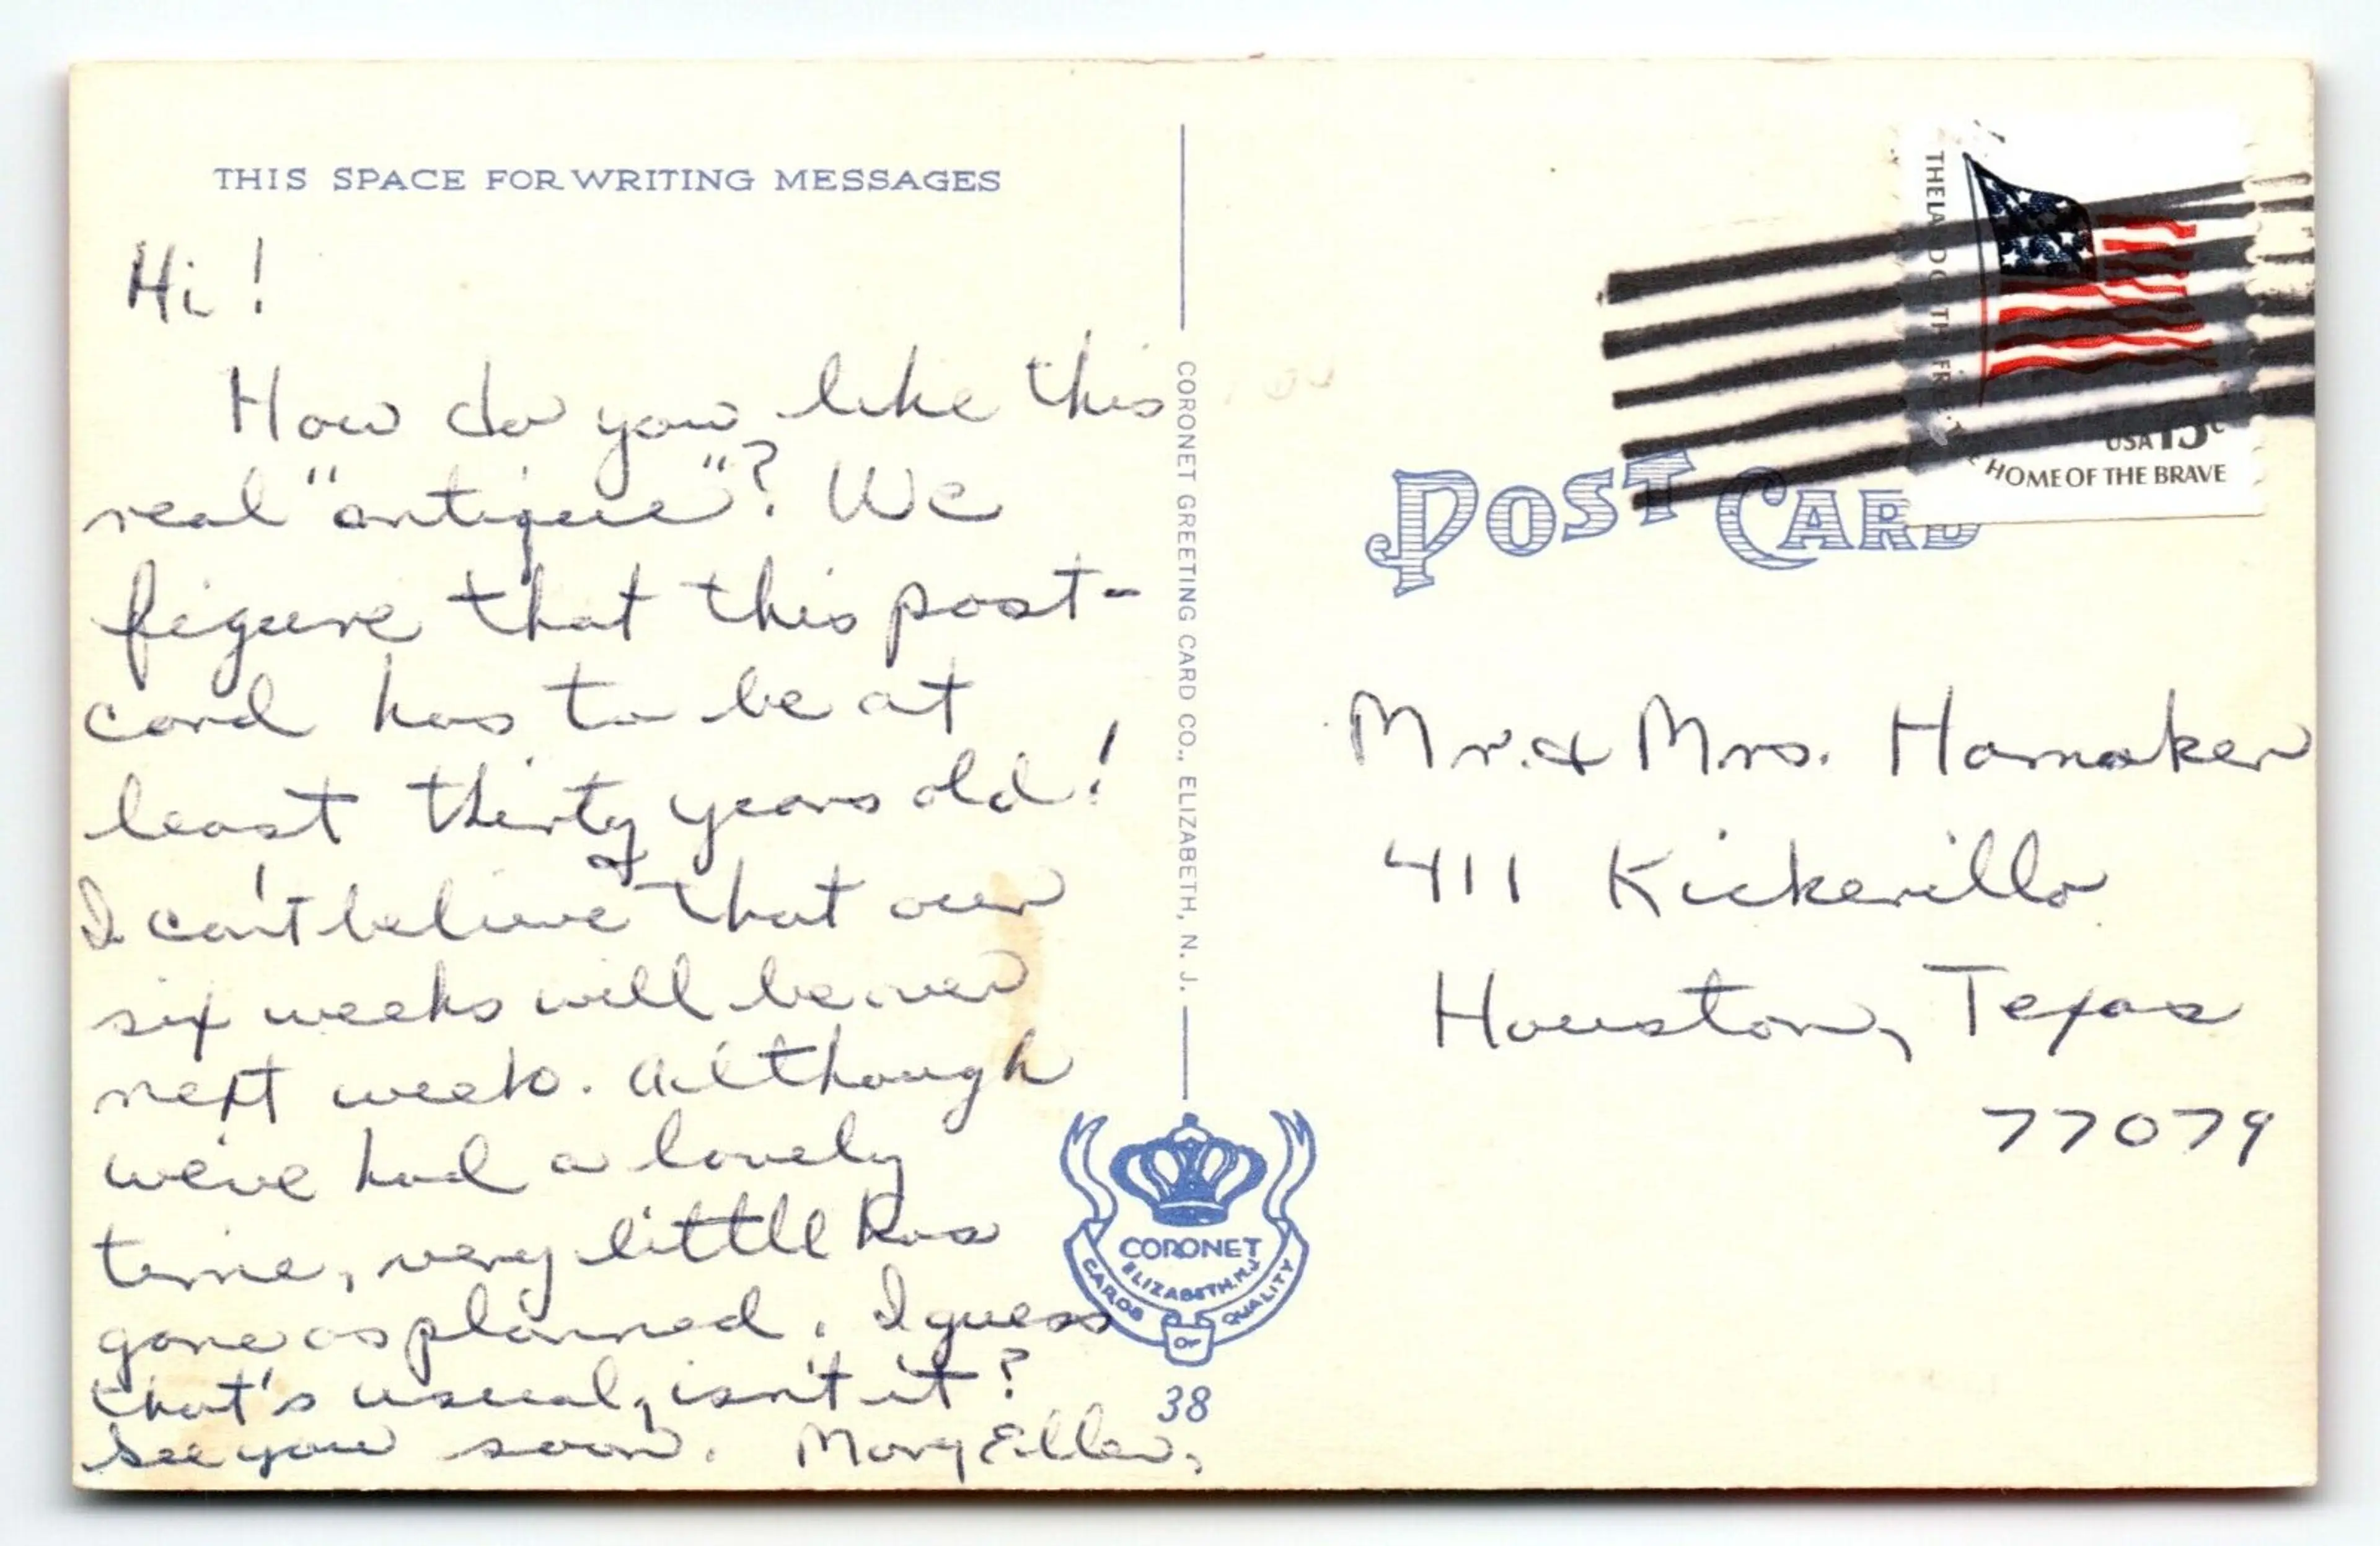 THIS SPACE FOR WRITING MESSAGES
Hi!
How do you like this
real "antique"? We
figure that this post-
card has to be at
least thirty years old!
I can't believe that our
six weeks will be over
next week. Although
we've had a lovely
time, very little has
gone as planned. I guess
that's usual, isn't it?
See you soon. Mary Ellen,
CORONET GREETING CARD CO., ELIZABETH, N. J.
CORONET
ELIZABETH, N.J.
CARDS OF QUALITY
38
THE LAND OF THE FREE · THE HOME OF THE BRAVE
USA 15c
POST CARD
Mr. & Mrs. Hamaker
411 Kickerillo
Houston, Texas
77079